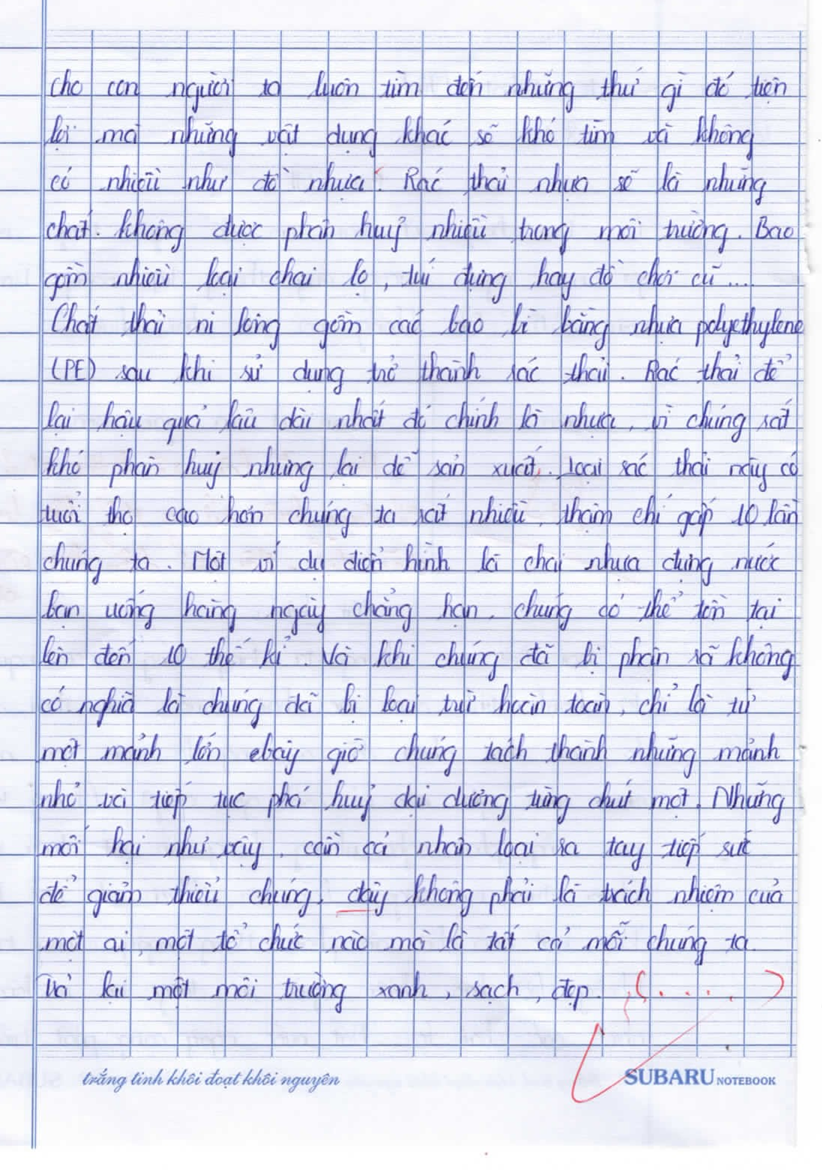 cho con người ta luôn tìm đến những thứ gì đó tiện
lợi mà những vật dụng khác sẽ khó tìm và không
có nhiều như đồ nhựa. Rác thải nhựa sẽ là những
chất không được phân huỷ nhiều trong môi trường. Bao
gồm nhiều loại chai lọ, túi đựng hay đồ chơi cũ ....
Chất thải ni lông gồm các bao bì bằng nhựa polyethylene
(PE) sau khi sử dụng trở thành rác thải. Rác thải để
lại hậu quả lâu dài nhất đó chính là nhựa, vì chúng rất
khó phân huỷ nhưng lại dễ sản xuất. Loại rác thải này có
tuổi thọ cao hơn chúng ta rất nhiều, thậm chí gấp 10 lần
chúng ta. Một ví dụ điển hình là chai nhựa đựng nước
bạn uống hàng ngày chẳng hạn, chúng có thể tồn tại
lên đến 10 thế kỉ. Và khi chúng đã bị phân rã không
có nghĩa là chúng đã bị loại trừ hoàn toàn, chỉ là từ
một mảnh lớn ebây giờ chúng tách thành những mảnh
nhỏ và tiếp tục phá huỷ đại dương từng chút một. Những
mối hại như vậy, cần cả nhân loại ra tay tiếp sức
để giảm thiểu chúng, đây không phải là trách nhiệm của
một ai, một tổ chức nào mà là tất cả mỗi chúng ta.
Vả lại một môi trường xanh, sạch, đẹp. (....)
trắng tinh khôi đoạt khôi nguyên SUBARU NOTEBOOK